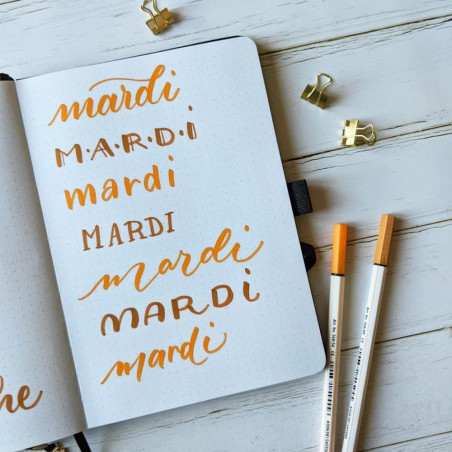 mardi
M·A·R·D·i
mardi
MARDI
mardi
MARDI
mardi
he